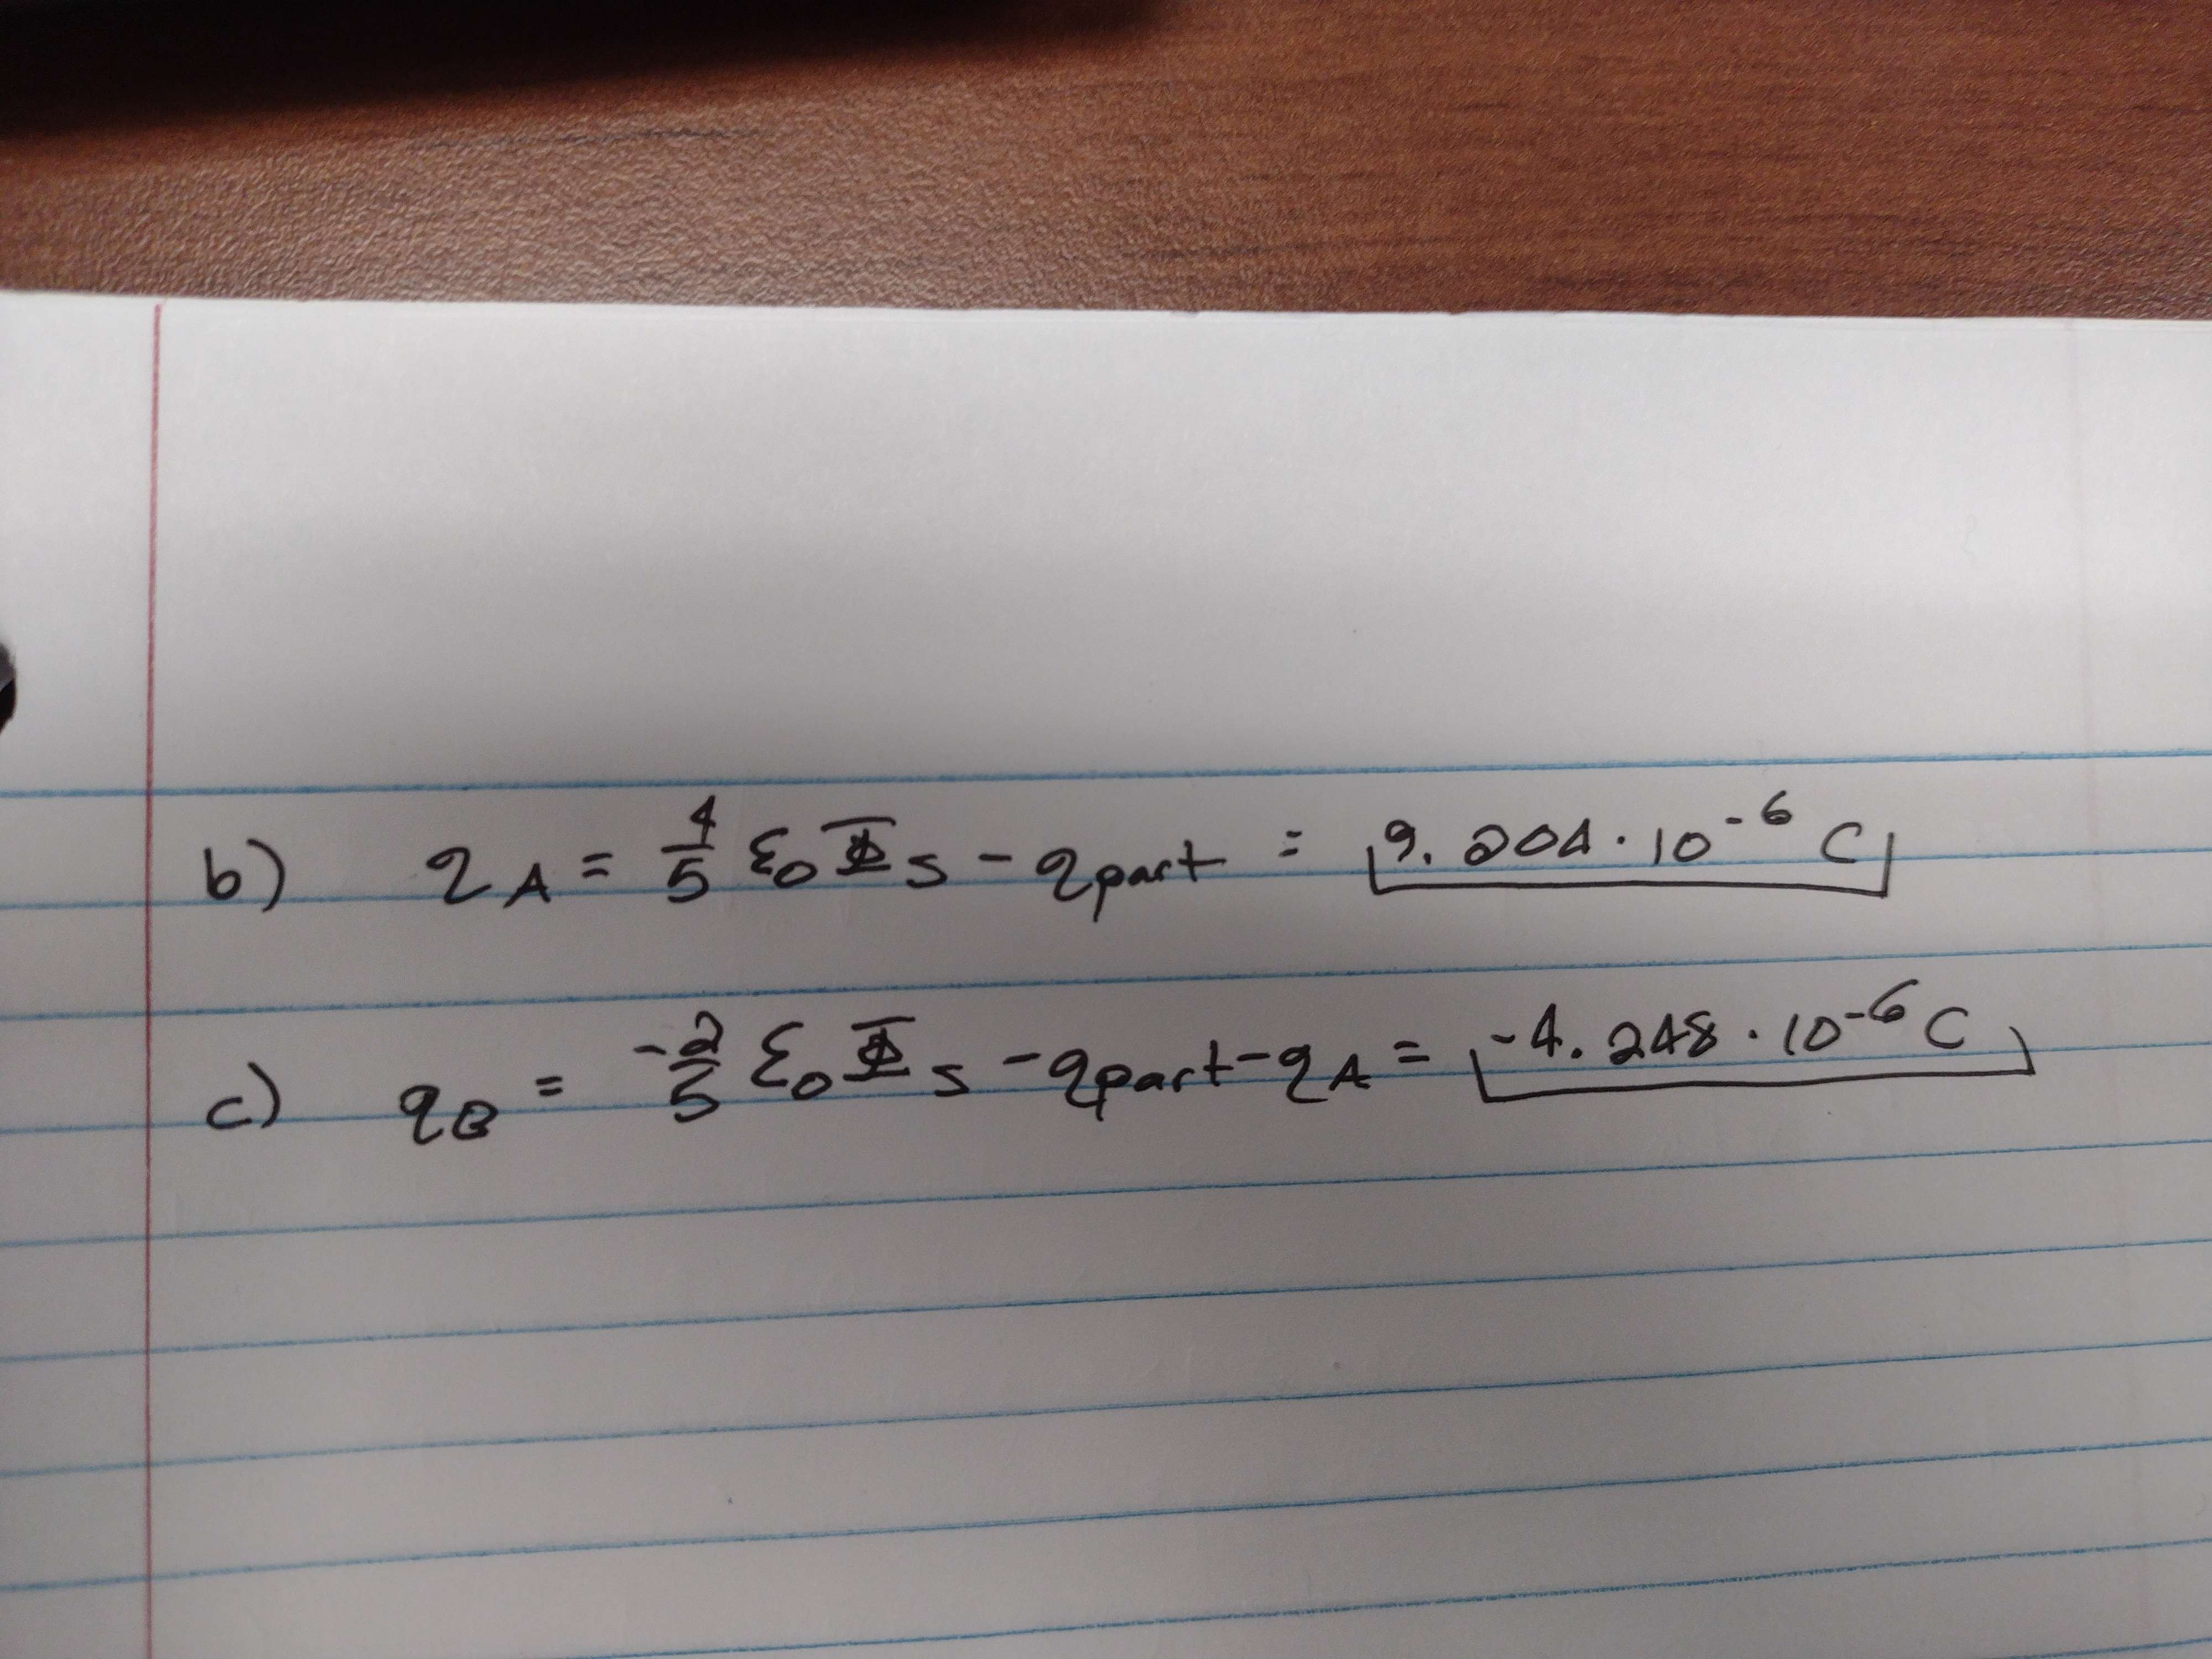 b) qA = 4/5 ε0 Φs - qpart = 9.204·10^-6 C
c) qB = -2/5 ε0 Φs - qpart - qA = -4.248·10^-6 C